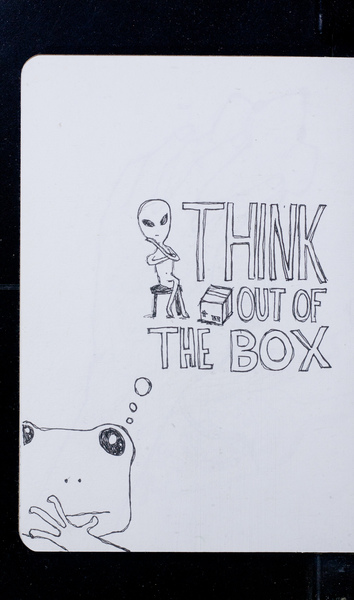 THINK
OUT OF
THE BOX